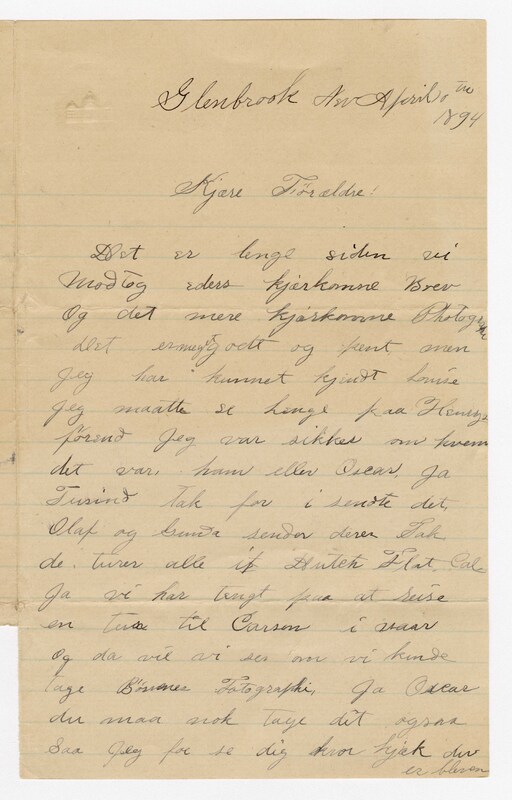 Glenbrook Nev April
1894
Kjære Forældre!
Det er lenge siden vi
Modtog eders kjerkomne Brev
Og det mere kjerkomne Photografi
det er meget godt og pent men
Jeg har kunnet kjendt Louise
Jeg maatte se lenge paa Henry
førend Jeg var sikker om hvem
det var, ham eller Oscar, Ja
Tusind tak for i sendte det,
Olaf og sender deres Tak
de alle Dutch Flat, Cal
Ja vi har tengt paa at Reise
en tur til Carson i vaar
Og da vil vi se om vi kunde
tage Børnenes Fotographi, Ja Oscar
du maa nok tage dit ogsaa
Saa Jeg for se dig hvor kjæk du
er bleven